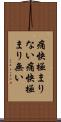 痛快極まり
ない痛快極
まり無い